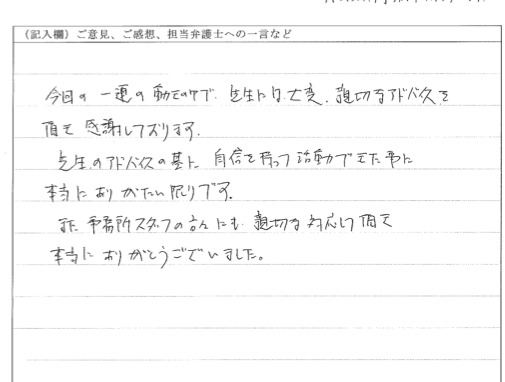 (記入欄) ご意見、ご感想、担当弁護士への一言など
今回の一連の動きの中で、先生には、大変、親切なアドバイスを
頂き感謝しております。
先生のアドバイスの基に、自信を持って活動できた事に
本当にありがたい限りです。
また事務所スタッフの方々にも、親切な対応して頂き
本当にありがとうございました。